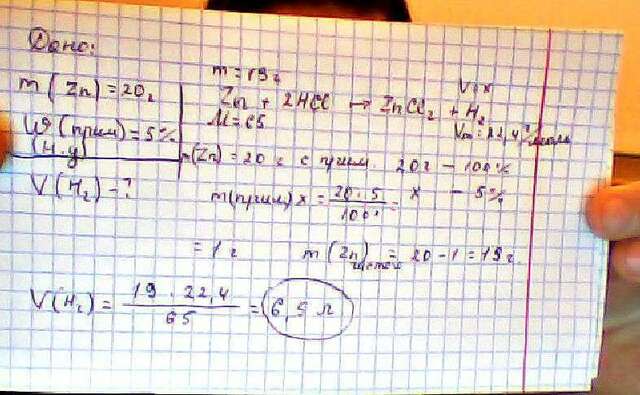 Дано:
m (Zn) = 20г
ω (прим) = 5%
(н.у)
V (H₂) - ?
m = 19г
V = x
Zn + 2HCl → ZnCl₂ + H₂
M = 65
Vm = 22,4 л/моль
m(Zn) = 20 г с прим. 20г - 100%
m(прим) x = 20 · 5 / 100 =
x - 5%
= 1 г
m (Zn) чистого = 20 - 1 = 19г.
V(H₂) = 19 · 22,4 / 65 = 6,5 л